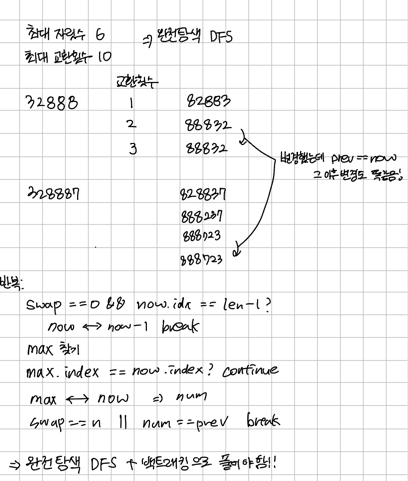 최대 자릿수 6 ⇒ 완전탐색 DFS
최대 교환횟수 10
교환횟수
32888 1 82883
2 88832
3 88832
변경했는데 prev == now
그 이후 변경도 똑같음!
328887 828837
888237
888723
888723
반복:
swap == 0 && now.idx == len-1?
now ↔ now-1 break
max 찾기
max.index == now.index? continue
max ↔ now ⇒ num
swap == n || num == prev break
⇒ 완전탐색 DFS + 백트래킹으로 풀어야함!!